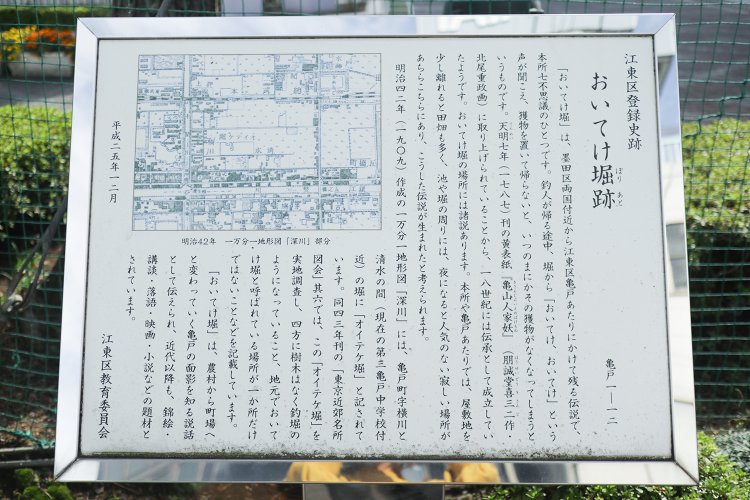 江東区登録史跡
おいてけ堀跡
ぼり あと
亀戸一―一二
「おいてけ堀」は、墨田区両国付近から江東区亀戸あたりにかけて残る伝説で、
本所七不思議のひとつです。釣人が帰る途中、堀から「おいてけ、おいてけ」という
声が聞こえ、獲物を置いて帰らないと、いつのまにかその獲物がなくなってしまうと
いうものです。天明七年(一七八七)刊の黄表紙『亀山人家妖』(朋誠堂喜三二作・
北尾重政画)に取り上げられていることから、一八世紀には伝承として成立してい
たようです。おいてけ堀の場所には諸説あります。本所や亀戸あたりでは、屋敷地を
少し離れると田畑も多く、池や堀の周りには、夜になると人気のない寂しい場所が
あちらこちらにあり、こうした伝説が生まれたと考えられます。
明治四二年(一九〇九)作成の一万分一地形図「深川」には、亀戸町字横川と
清水の間(現在の第三亀戸中学校付
近)の堀に「オイテケ堀」と記されて
います。同四三年刊の『東京近郊名所
図会』其六では、この「オイテケ堀」を
実地調査し、四方に樹木はなく釣堀の
ようになっていること、地元でおいて
け堀と呼ばれている場所が一か所だけ
ではないことなどを記載しています。
「おいてけ堀」は、農村から町場へ
と変わっていく亀戸の面影を知る説話
として伝えられ、近代以降も、錦絵・
講談・落語・映画・小説などの題材と
されています。
江東区教育委員会
明治42年 一万分一地形図「深川」部分
平成二五年一二月